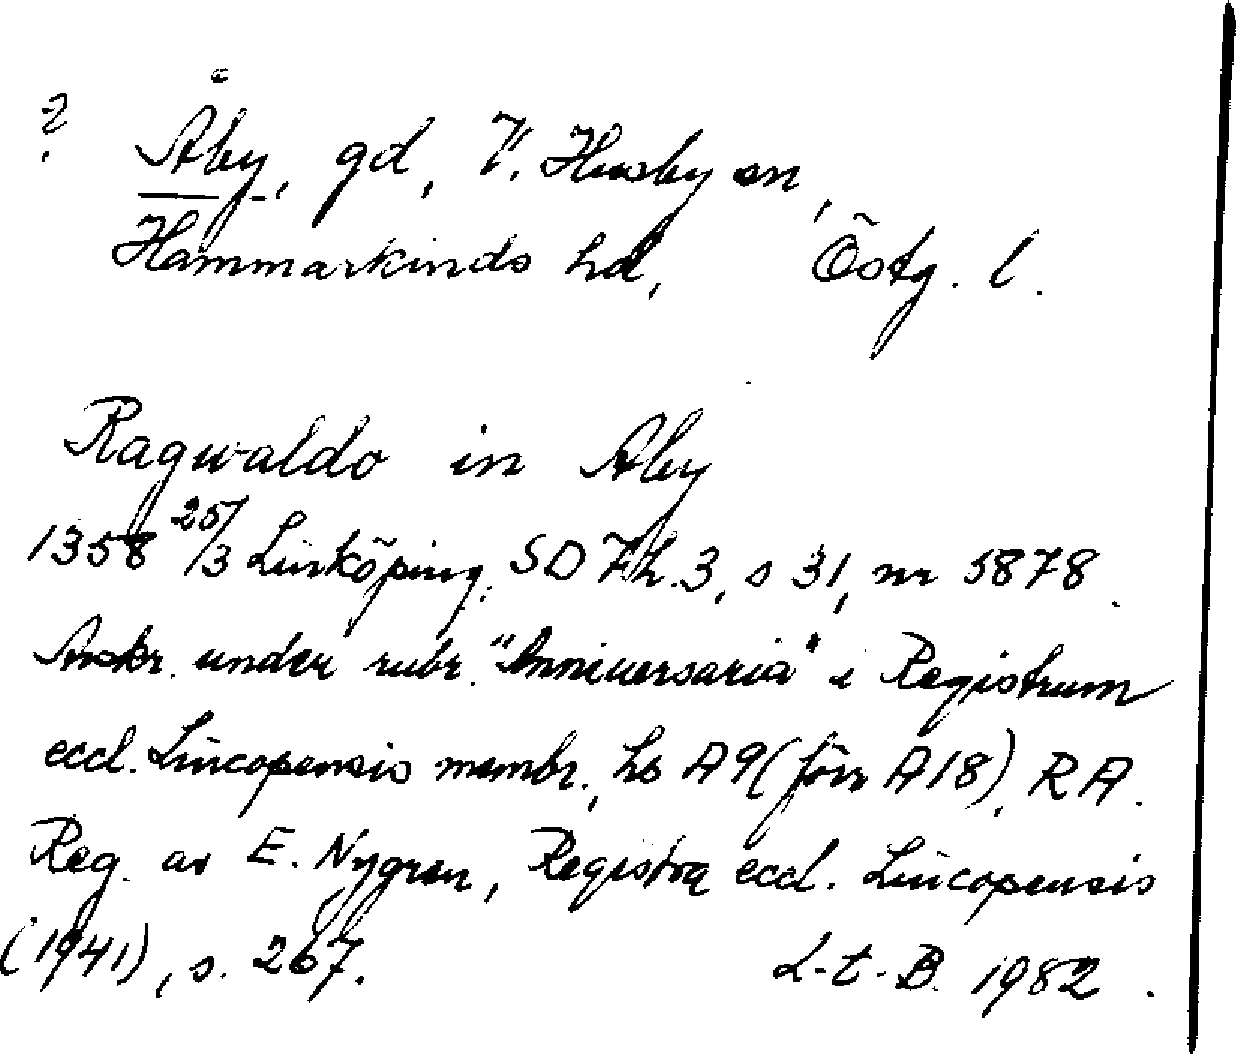 ? Åby, gd, V. Husby sn,
Hammarkinds hd, Östg. l.
Ragwaldo in Aby
1358 25/3 Linköping. SD 7 h. 3, s 31, nr 5878.
Avskr. under rubr. "Anniuersaria" i Registrum
eccl. Lincopensis membr., hs A9 (förr A18), RA.
Reg. av E. Nygren, Registra eccl. Lincopensis
(1941), s. 267. L-t-B. 1982.